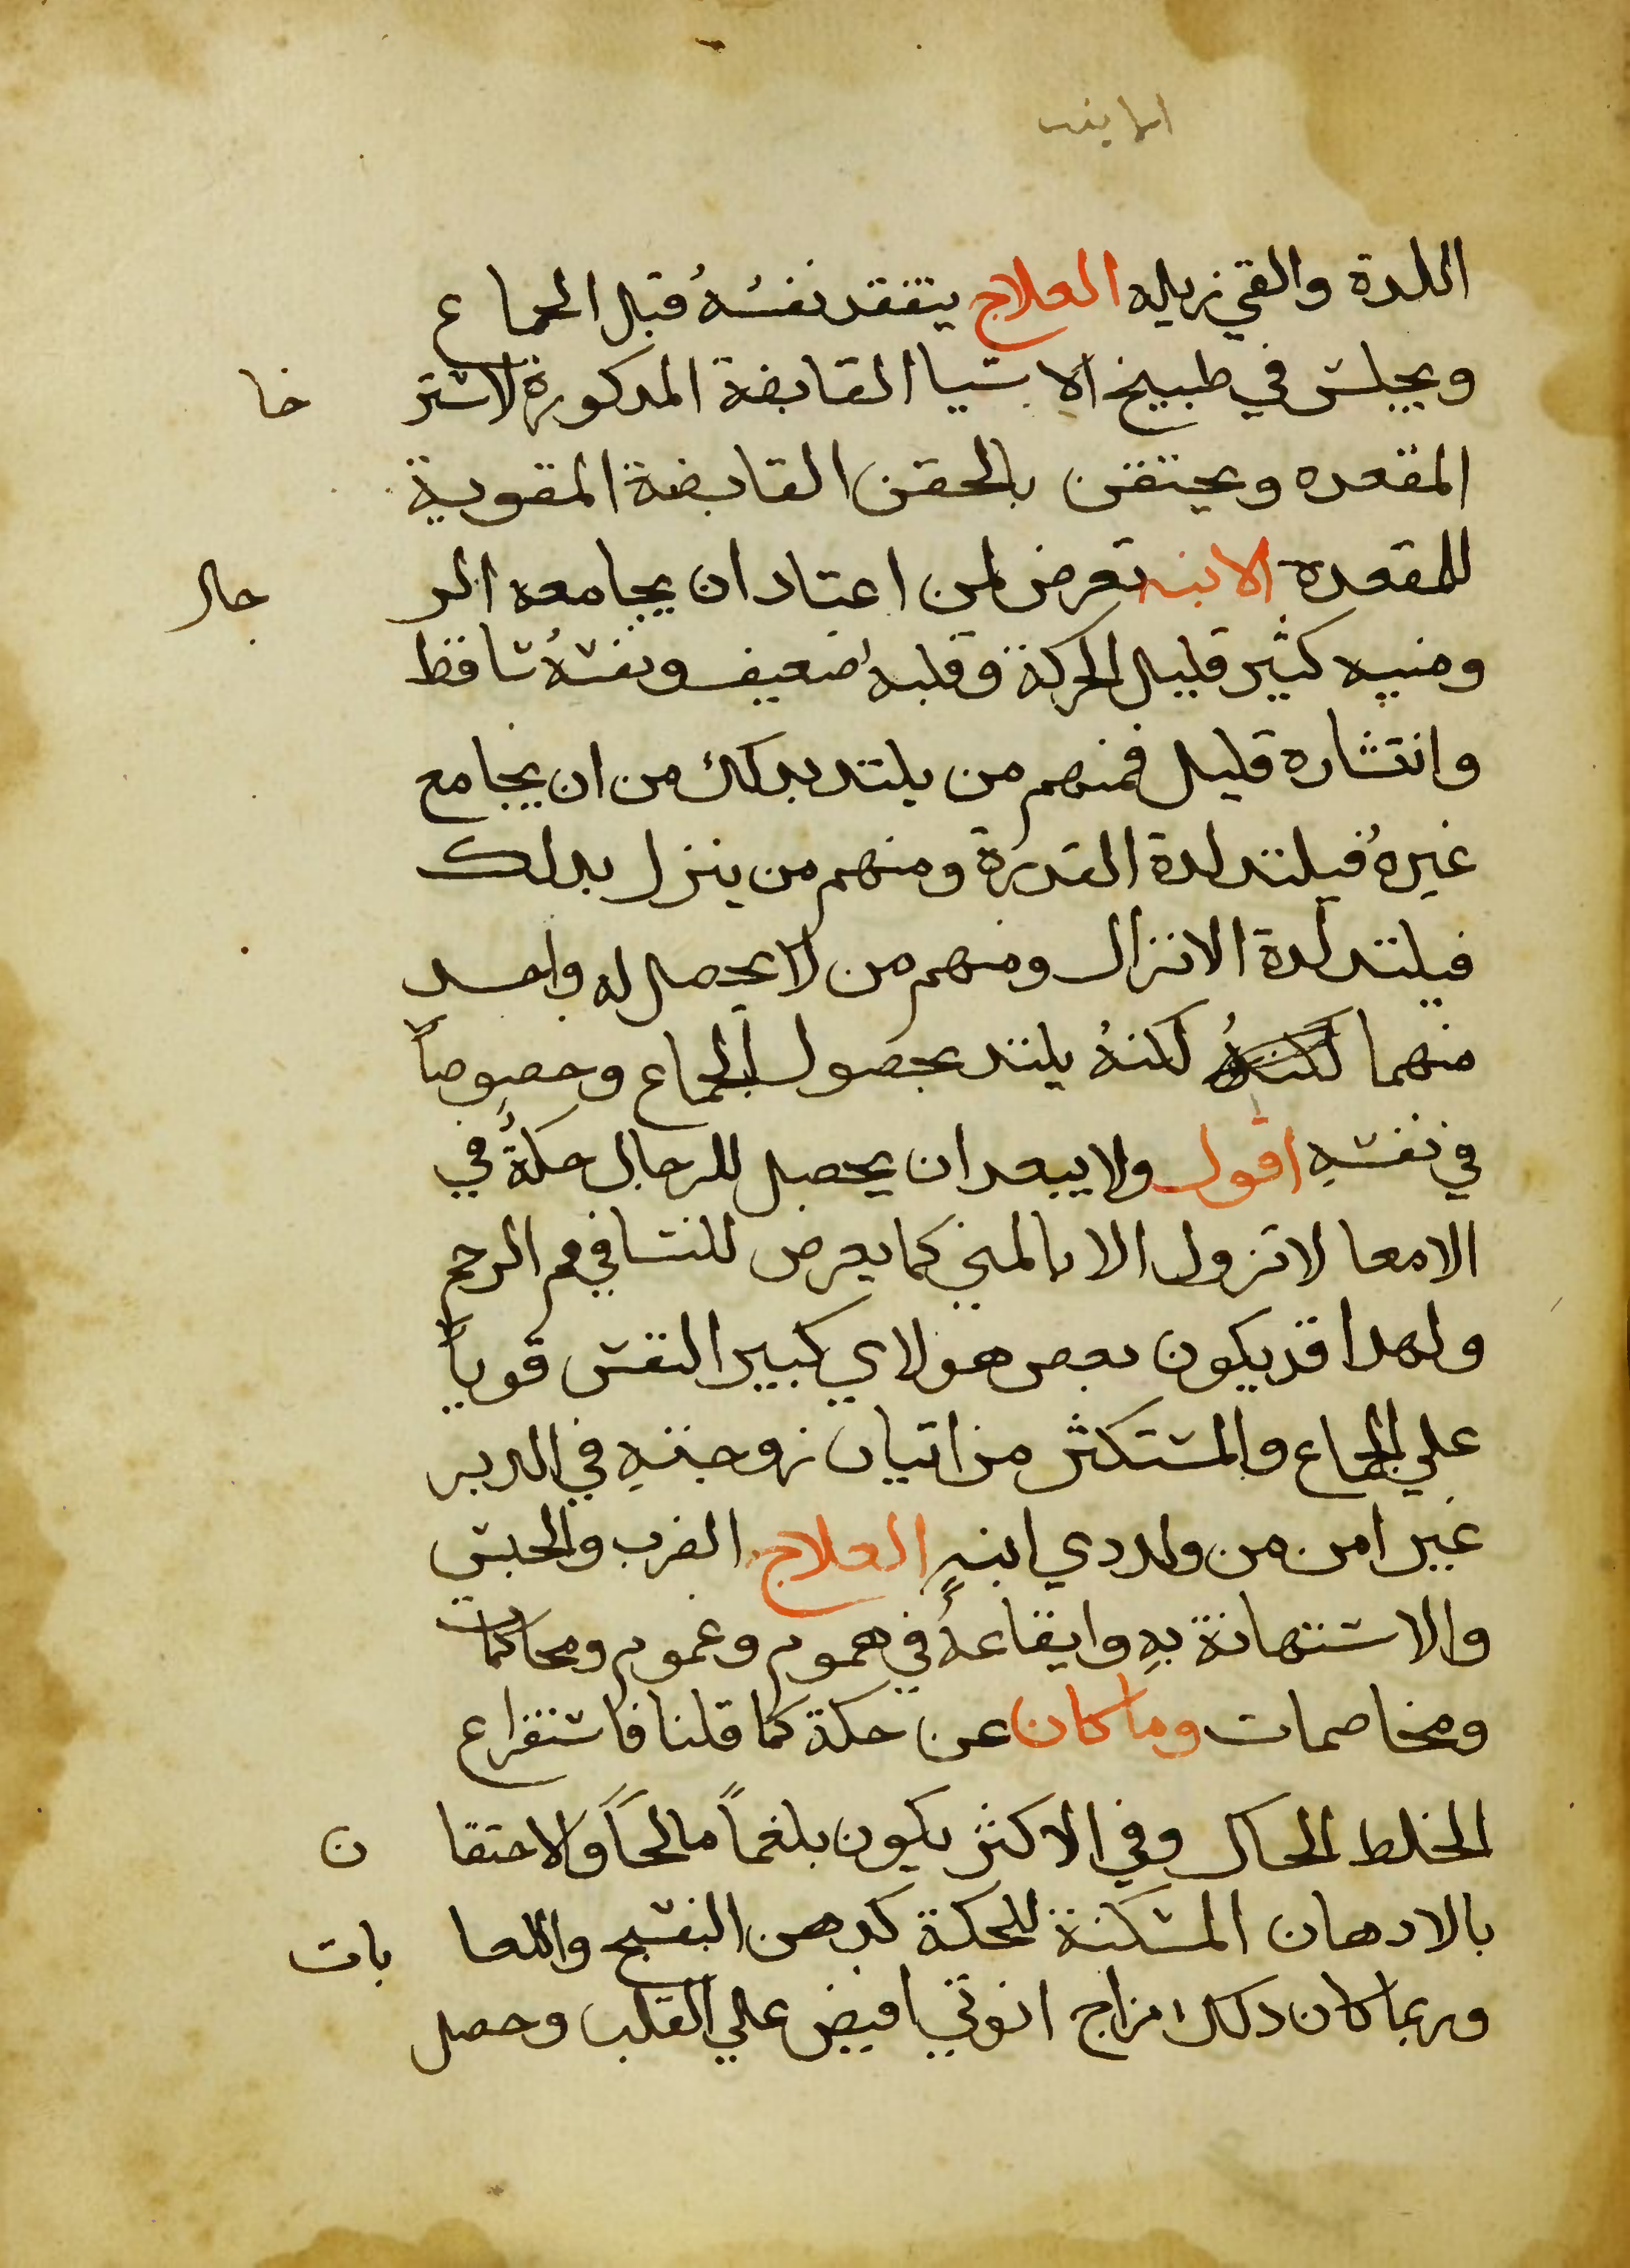 اللدة والقي زيله العلاج يتفقد نفسهُ قبل الجماع
ويجلس في طبيخ الاشيا القابضة المدكورة لاسترخا
المقعده ويحتقن بالحقن القابضة المقوية
للمقعدة الابنه تعرض لمن اعتاد ان يجامعه الرجال
ومنيه كثير قليل الحركة وقلبهُ ضعيف ونفسهُ ساقط
وانتشاره قليل فمنهم من يلتد بدلك من ان يجامع
غيرهُ فيلتد لدة القدرة ومنهم من ينزل بدلك
فيلتد لدة الانزال ومنهم من لا يحصل له واحد
منهما لكنهُ يلتد بحصول الجماع وخصوصاً
في نفسهِ اقول ولا يبعد ان يحصل للرجال حكةٌ في
الامعا لا تزول الا بالمني كما يعرض للنسا في فم الرحم
ولهدا قد يكون بعض هولاي كبير النفس قوياً
علي الجماع والمستكثر من اتيان زوجتهِ في الدبر
غير امن من ولد دي ابنهٍ العلاج الضرب والحبس
والاستهانة بهِ وايقاعهُ في هموم وغموم ومحاكمات
ومخاصمات وما كان عن حكة كما قلنا فاستفراغ
الخلط الحاك وفي الاكثر يكون بلغماً مالحاً والاحتقان
بالادهان المسكنة للحكة كدهن البنفسج واللعابات
وربما كان دلك مزاج انوتي افيض علي القلب وحصل